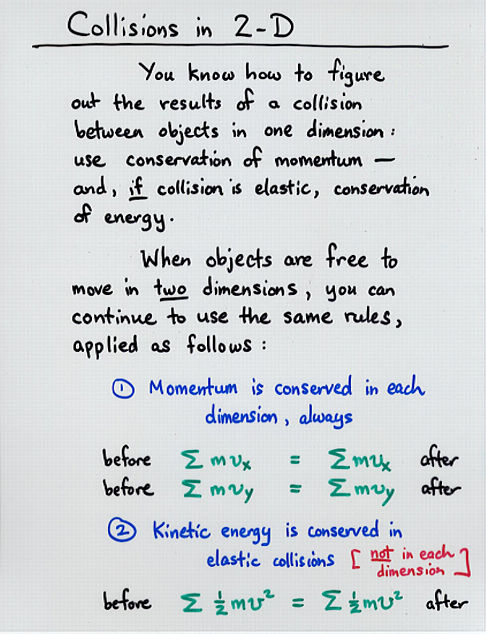 Collisions in 2-D
You know how to figure
out the results of a collision
between objects in one dimension:
use conservation of momentum —
and, if collision is elastic, conservation
of energy.
When objects are free to
move in two dimensions, you can
continue to use the same rules,
applied as follows:
① Momentum is conserved in each
dimension, always
before Σ mvₓ = Σ mvₓ after
before Σ mvy = Σ mvy after
② Kinetic energy is conserved in
elastic collisions [not in each
dimension]
before Σ ½mv² = Σ ½mv² after